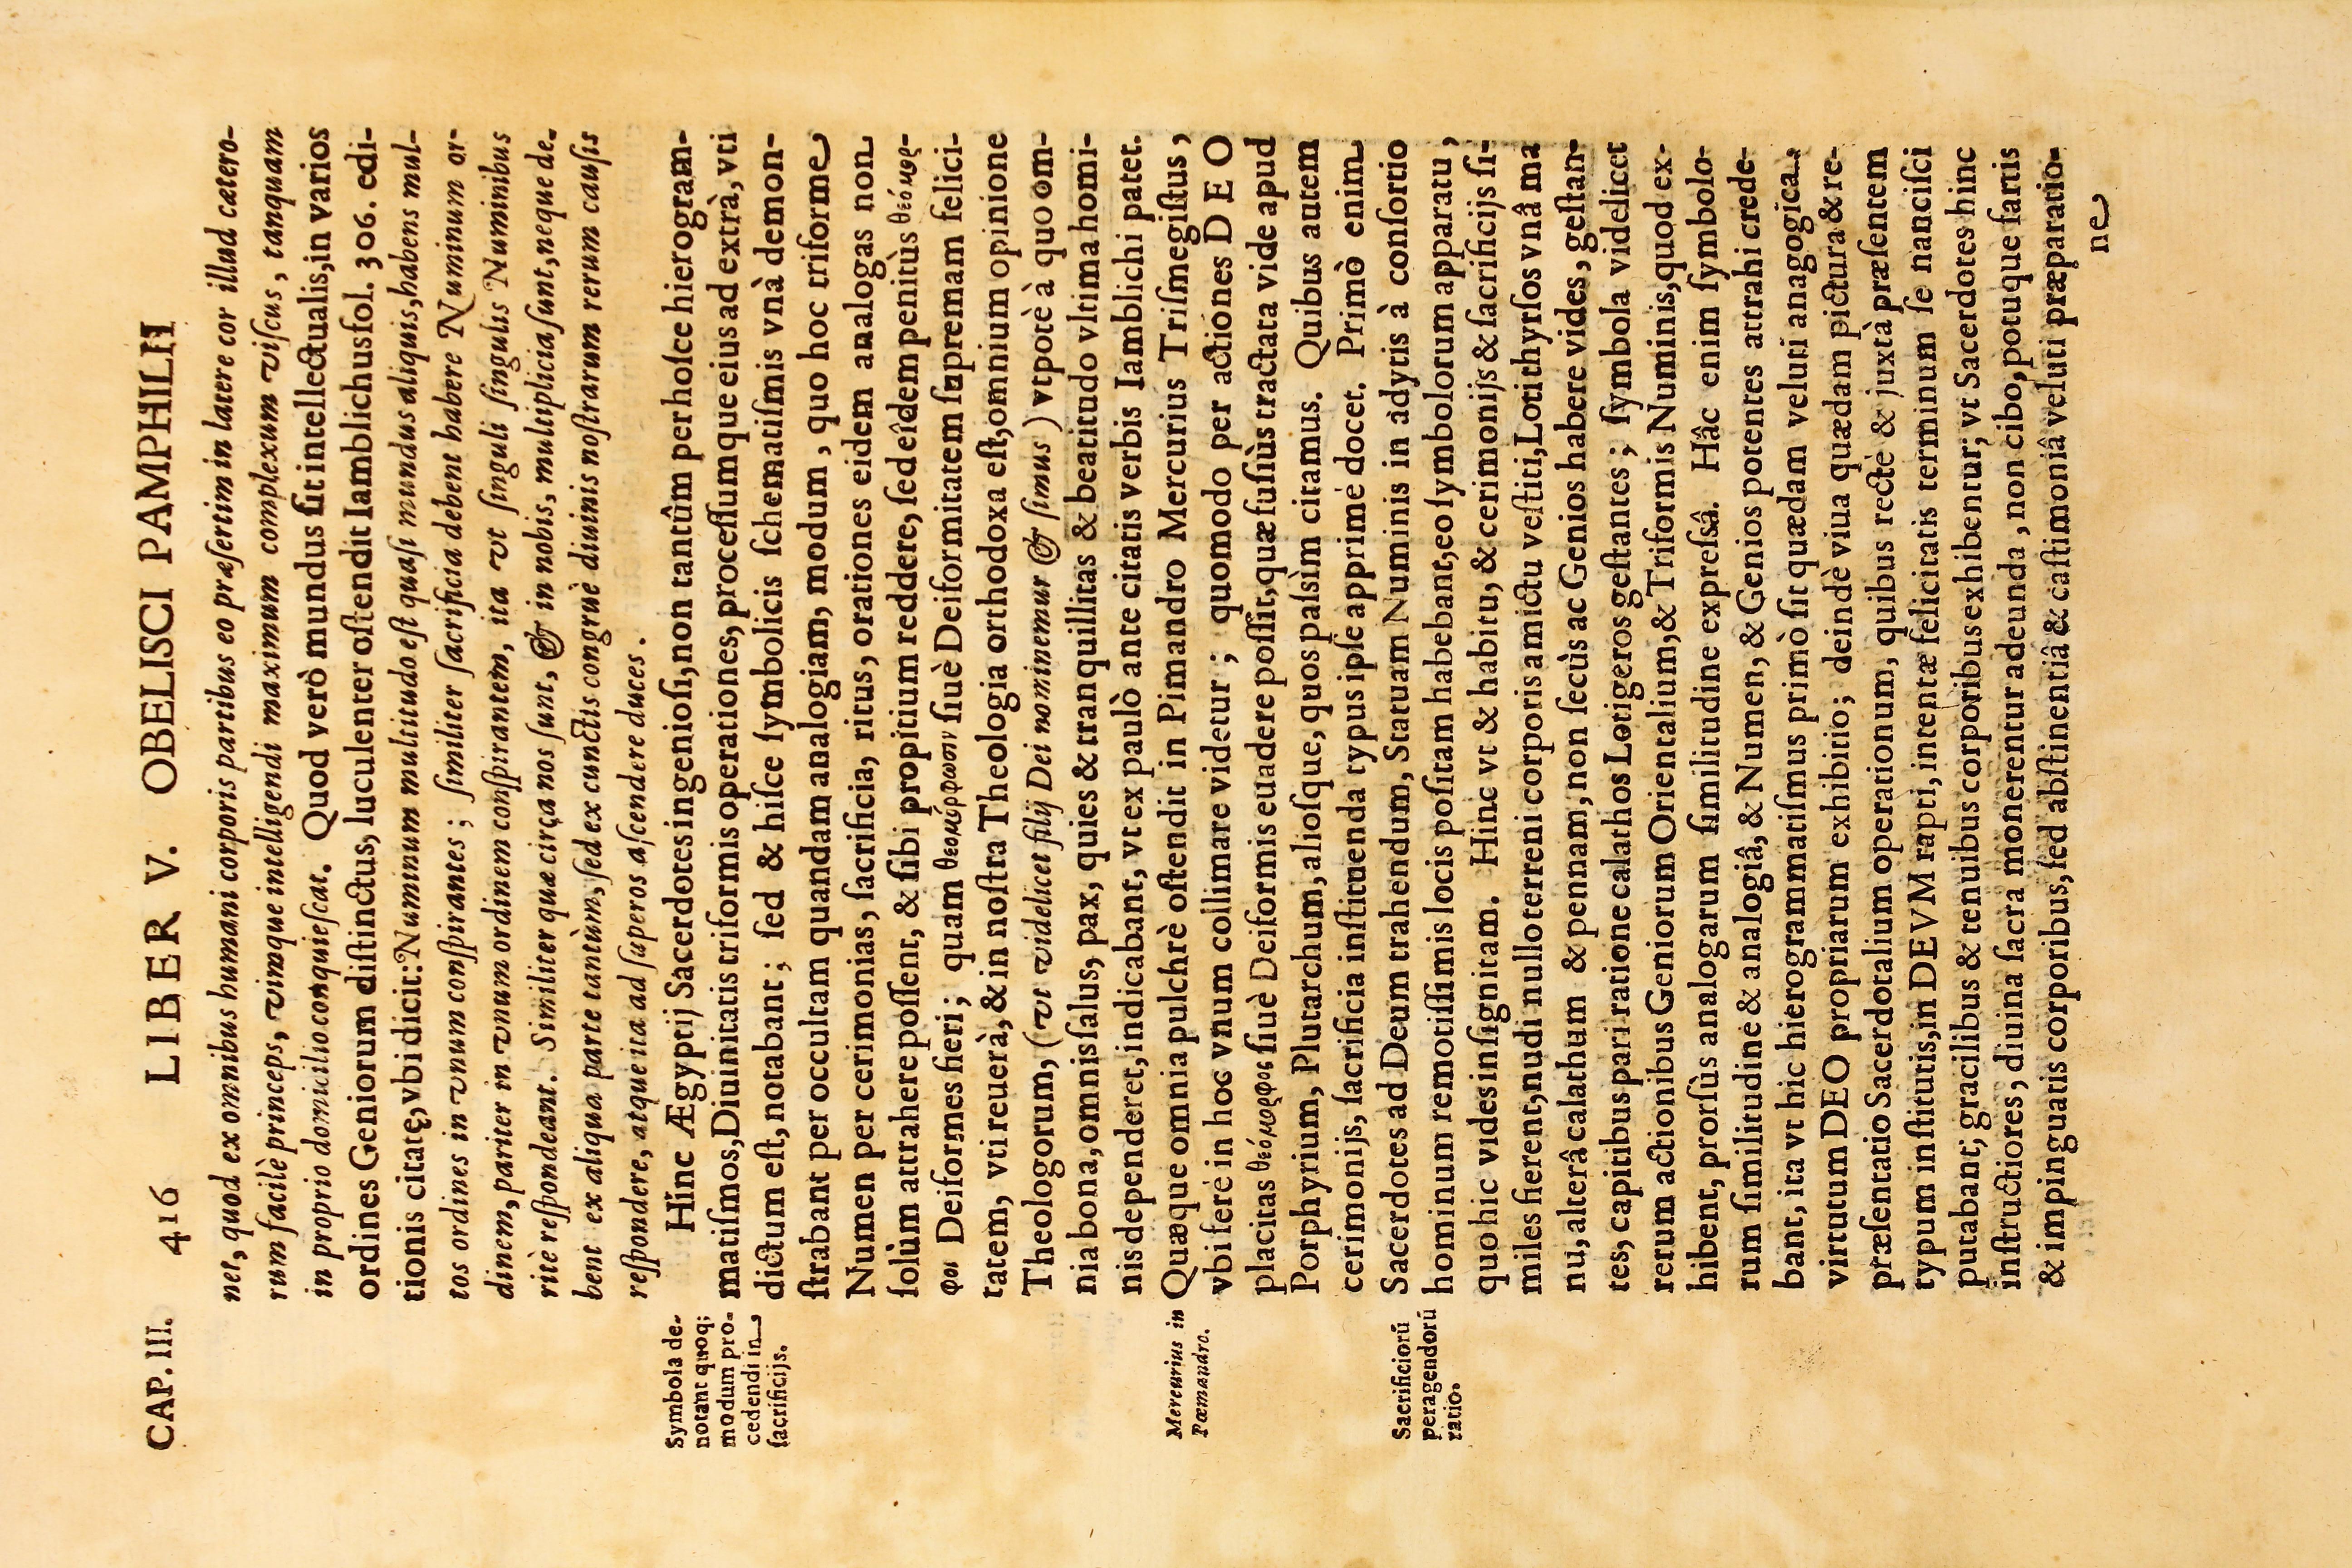 CAP. III. 416 LIBER V. OBELISCI PAMPHILII
net, quod ex omnibus humani corporis partibus eo præsertim in latere cor illud cætero-
rum facilè princeps, vimque intelligendi maximum complexum viscus, tanquam
in proprio domicilio conquiescat. Quod verò mundus sit intellectualis, in varios
ordines Geniorum distinctus, luculenter ostendit Iamblichus fol. 306. edi-
tionis citatę, vbi dicit: Numinum multitudo est quasi mundus aliquis, habens mul-
tos ordines in vnum conspirantes; similiter sacrificia debent habere Numinum or-
dinem, pariter in vnum ordinem conspirantem, ita vt singuli singulis Numinibus
ritè respondeant. Similiter quæ circa nos sunt, & in nobis, multiplicia sunt, neque de-
bent ex aliqua parte tantùm, sed ex cunctis congruè diuinis nostrarum rerum causis
respondere, atque ita ad superos ascendere duces.
Symbola de-
notant quoq;
modum pro-
cedendi in
sacrificijs.
Hinc Ægyptij Sacerdotes ingeniosi, non tantûm per hosce hierogram-
matismos, Diuinitatis triformis operationes, processumque eius ad extrà, vti
dictum est, notabant; sed & hisce symbolicis schematismis vnà demon-
strabant per occultam quandam analogiam, modum, quo hoc triforme
Numen per cerimonias, sacrificia, ritus, orationes eidem analogas non
solùm attrahere possent, & sibi propitium reddere, sed eîdem penitùs θεόμορ-
φοι Deiformes fieri; quam θεομόρφωσιν siuè Deiformitatem supremam felici-
tatem, vti reuerà, & in nostra Theologia orthodoxa est, omnium opinione
Theologorum, (vt videlicet filij Dei nominemur & simus) vtpotè à quo om-
nia bona, omnis salus, pax, quies & tranquillitas & beatitudo vltima homi-
nis dependeret, indicabant, vt ex paulò ante citatis verbis Iamblichi patet.
Mercurius in
Pœmandro.
Quæque omnia pulchrè ostendit in Pimandro Mercurius Trismegistus,
vbi ferè in hoc vnum collimare videtur; quomodo per actiones DEO
placitas θεόμορφος siuè Deiformis euadere possit, quæ fusiùs tractata vide apud
Porphyrium, Plutarchum, aliosque, quos passìm citamus. Quibus autem
cerimonijs, sacrificia instituenda typus ipse apprimè docet. Primò enim
Sacrificiorũ
peragendorũ
ratio.
Sacerdotes ad Deum trahendum, Statuam Numinis in adytis à consortio
hominum remotissimis locis positam habebant, eo symbolorum apparatu,
quo hic vides insignitam. Hinc vt & habitu, & cerimonijs & sacrificijs si-
miles fierent, nudi nullo terreni corporis amictu vestiti, Loti thyrsos vnâ ma
nu, alterâ calathum & pennam, non secùs ac Genios habere vides, gestan-
tes, capitibus pari ratione calathos Lotigeros gestantes; symbola videlicet
rerum actionibus Geniorum Orientalium, & Triformis Numinis, quod ex-
hibent, prorsùs analogarum similitudine expressâ. Hâc enim symbolo-
rum similitudine & analogiâ, & Numen, & Genios potentes attrahi crede-
bant, ita vt hic hierogrammatismus primò sit quædam veluti anagogica
virtutum DEO propriarum exhibitio; deindè viua quædam pictura & re-
præsentatio Sacerdotalium operationum, quibus rectè & juxtà præsentem
typum institutis, in DEVM rapti, intentæ felicitatis terminum se nancisci
putabant; gracilibus & tenuibus corporibus exhibentur, vt Sacerdotes hinc
instructiores, diuina sacra monerentur adeunda, non cibo, potuque fartis
& impinguatis corporibus, sed abstinentiâ & castimoniâ veluti præparatio-
ne